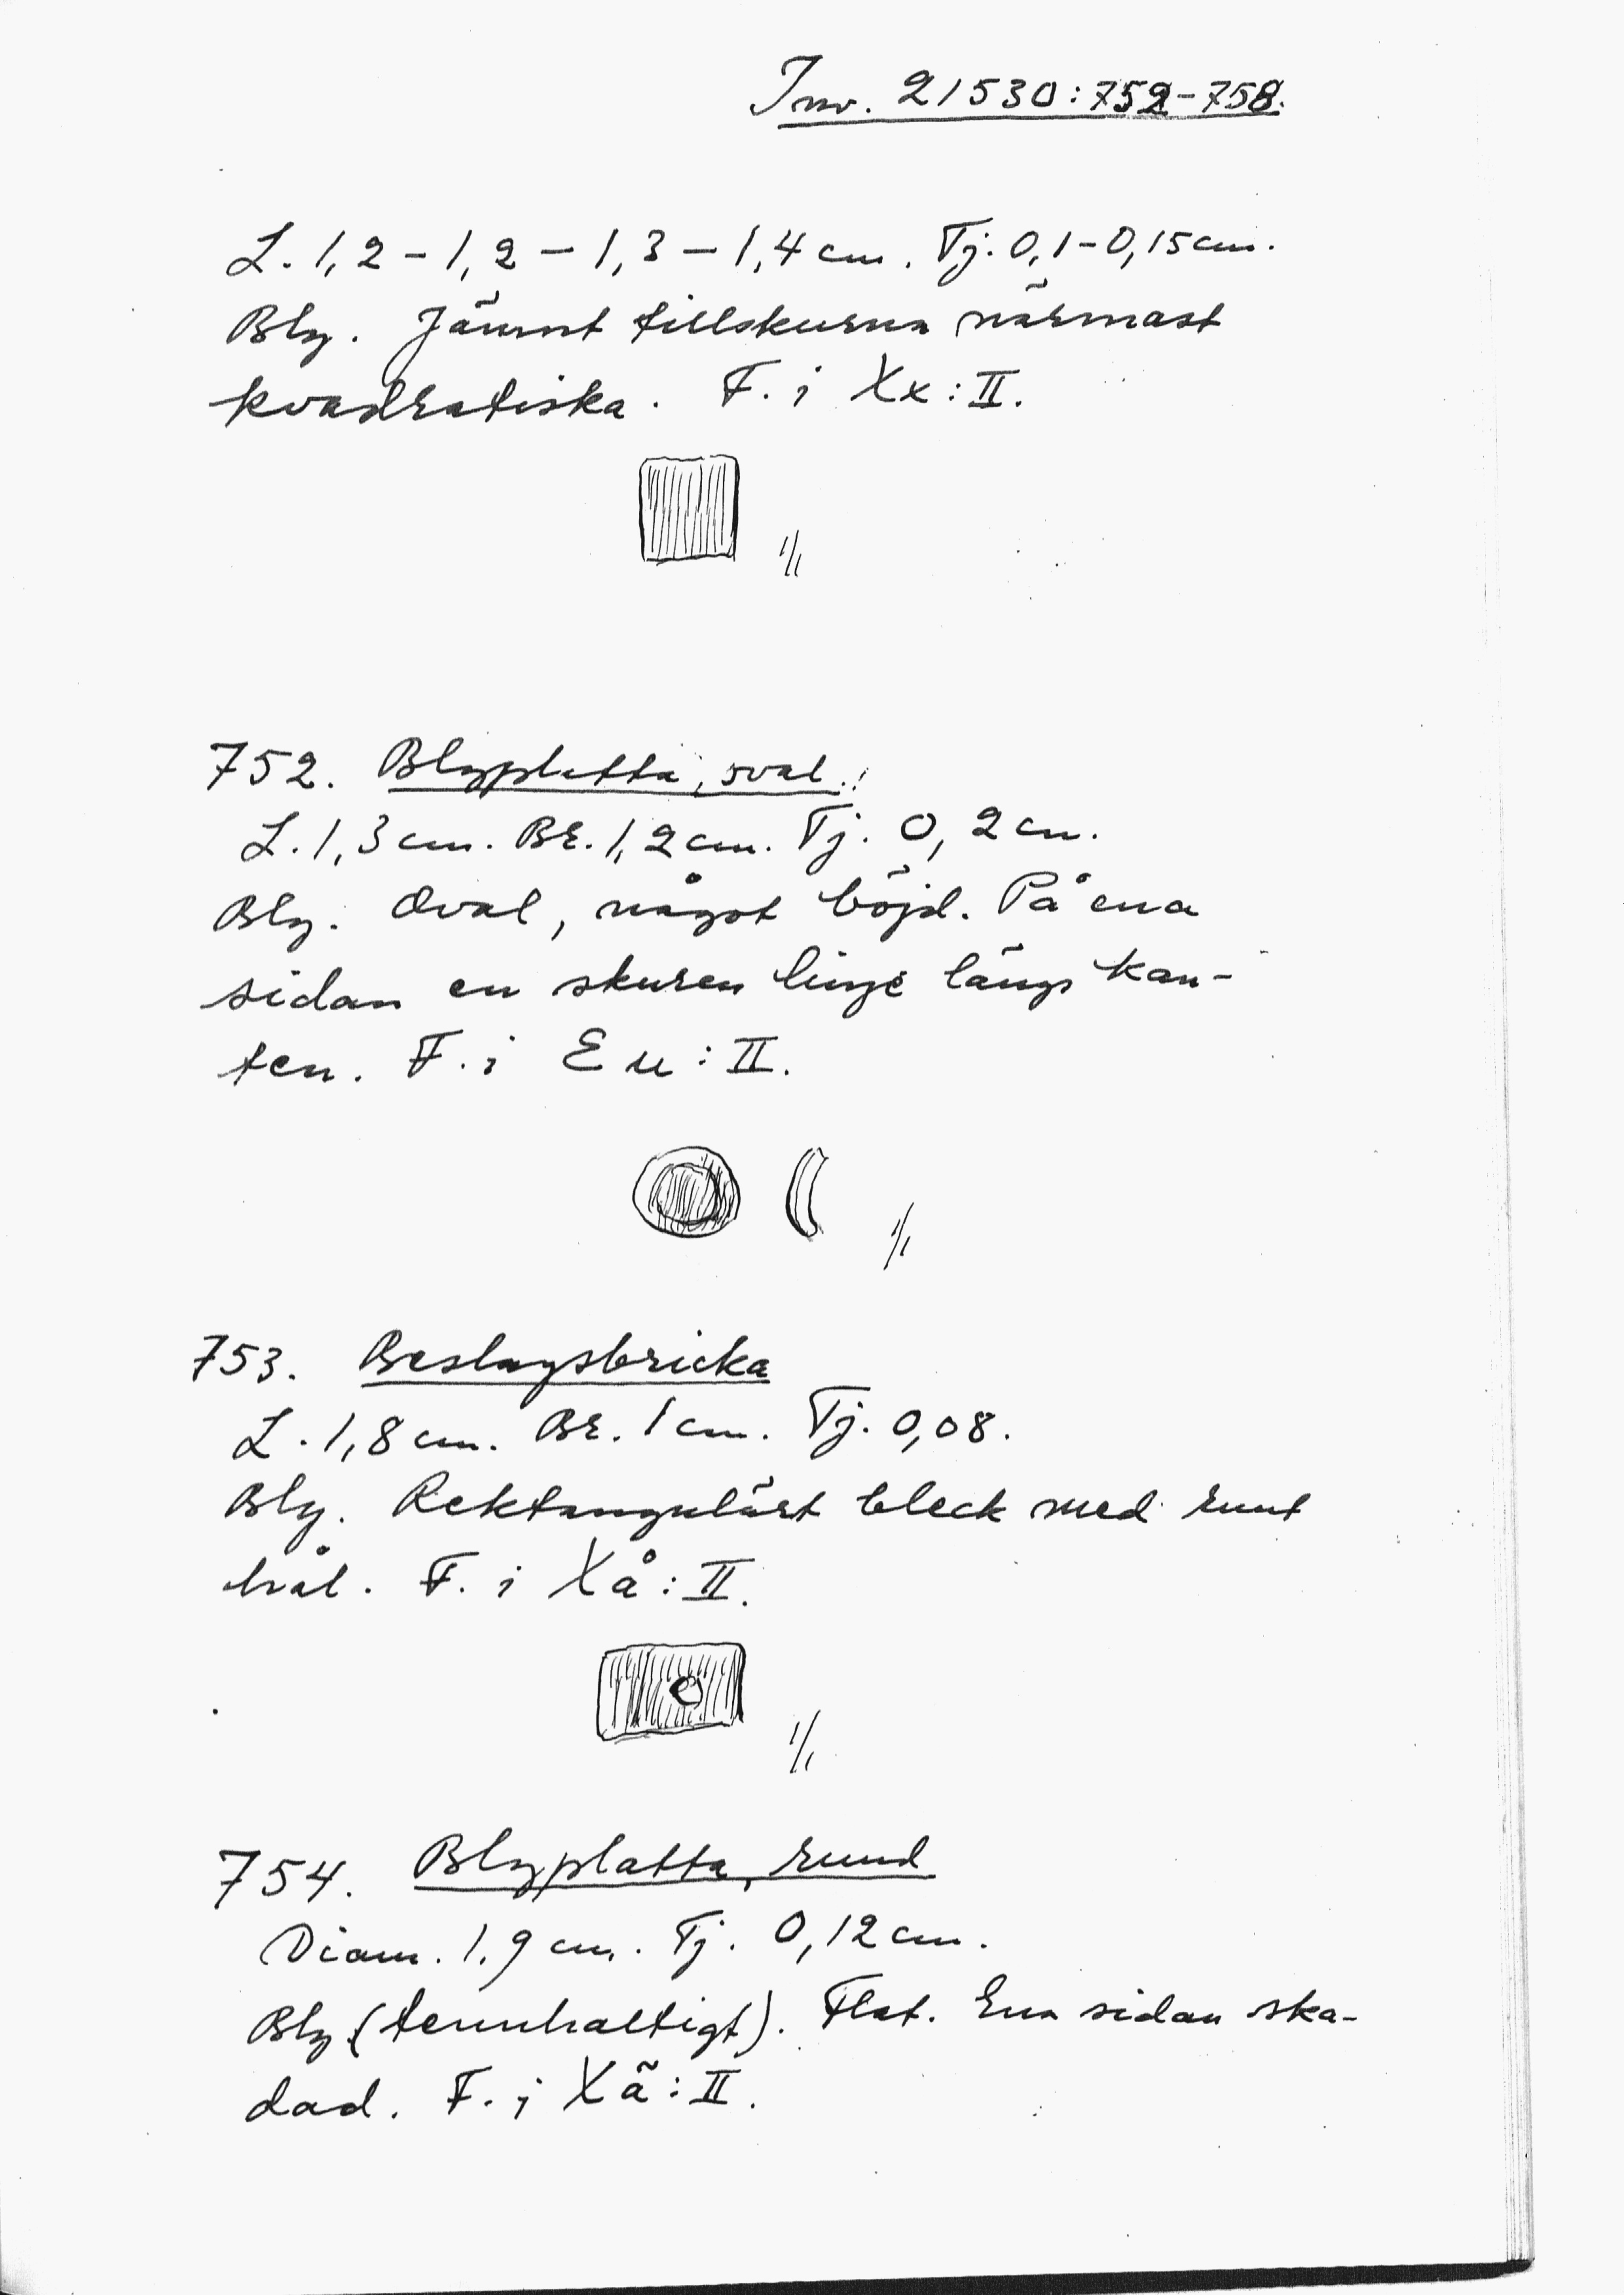 Inv. 21530:752-758.
L. 1,2 - 1,2 - 1,3 - 1,4 cm. Tj. 0,1-0,15 cm.
Bly. Jämnt tillskurna närmast
kvadratiska. F. i Xx:II.
1/1
752. Blyplatta, oval.
L. 1,3 cm. Br. 1,2 cm. Tj. 0,2 cm.
Bly. Oval, något böjd. På ena
sidan en skuren linje längs kan-
ten. F. i Eu:II.
1/1
753. Beslagsbricka
L. 1,8 cm. Br. 1 cm. Tj. 0,08.
Bly. Rektangulärt bleck med runt
hål. F. i Xå:II.
1/1
754. Blyplatta, rund
Diam. 1,9 cm. Tj. 0,12 cm.
Bly (tennhaltigt). Flat. Ena sidan ska-
dad. F. i Xä:II.